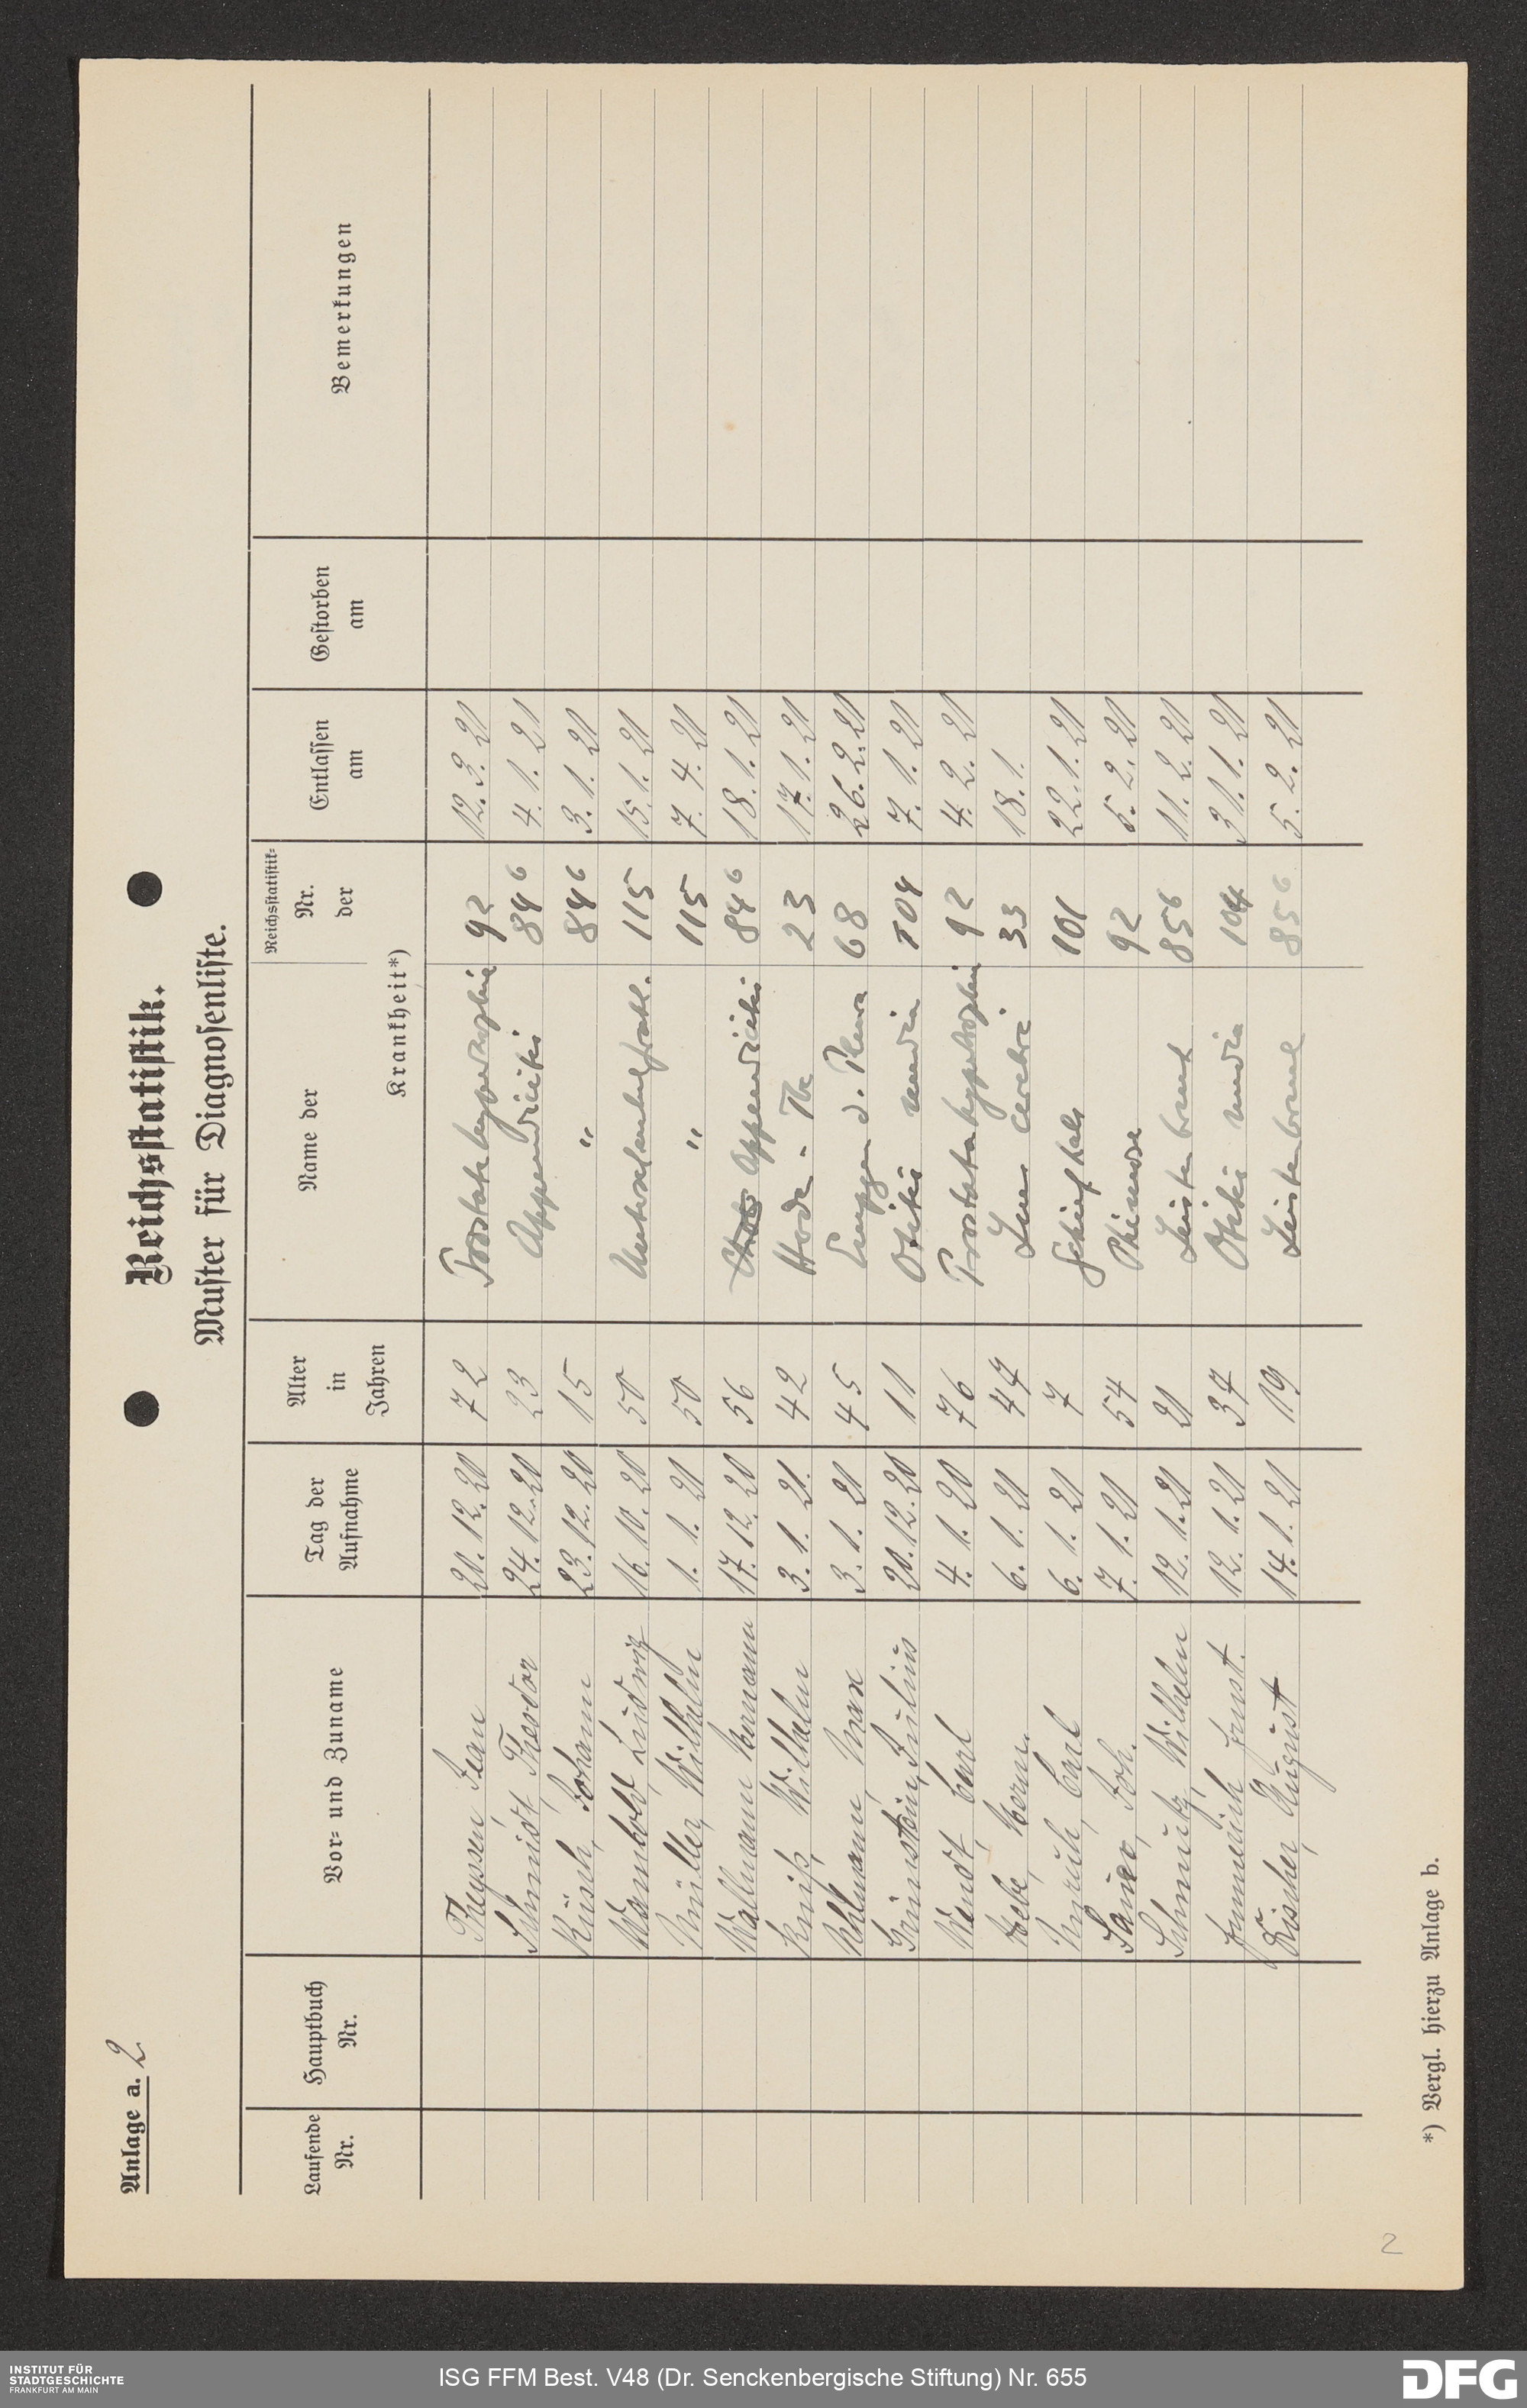 Anlage a. 2
Reichsstatistik.
Muster für Diagnosenliste.
Laufende Nr. Hauptbuch Nr. Vor- und Zuname Tag der Aufnahme Alter in Jahren Name der Reichsstatistik-Nr. der Krankheit*) Entlassen am Gestorben am Bemerkungen
Theyssen, Jean 20. 12. 20 72 Prostatahypertrophie 92 12. 3. 21
Schmidt, Theodor 24. 12. 20 23 Appendicitis 84 6 4. 1. 21
Rüsch, Johann 23. 12. 20 15 " 84 6 3. 1. 21
Wambold, Ludwig 16. 10. 20 50 Unterschenkelfrakt. 115 15. 1. 21
Müller, Wilhelm 1. 1. 21 50 " 115 7. 4. 21
Wallmann Hermann 17. 12. 20 56 Appendicitis 84 6 18. 1. 21
Wilhelm 3. 1. 21. 42 Hoden - Tbc 23 17. 1. 21
Max 3. 1. 21 45 d. Pleura 68 26. 2. 21
Grünstein, Julius 20. 12. 20 11 Otitis media 104 7. 1. 21
Wendt, Carl 4. 1. 20 76 Prostatahypertrophie 92 4. 2. 21
Herm. 6. 1. 21 47 Lues cerebri 33 18. 1.
Carl 6. 1. 21 7 Schiefhals 101 22. 1. 21
Sauer, Joh. 7. 1. 21 54 Phimose 92 5. 2. 21
Schmutz, Wilhelm 12. 1. 21 21 Leistenbruch 85 6 11. 2. 21
Ernst. 12. 1. 21 37 Otitis media 104 31. 1. 21
Fischer, August 14. 1. 21 19 Leistenbruch 85 6 5. 2. 21
*) Vergl. hierzu Anlage b.
2
INSTITUT FÜR
STADTGESCHICHTE
FRANKFURT AM MAIN
ISG FFM Best. V48 (Dr. Senckenbergische Stiftung) Nr. 655
DFG